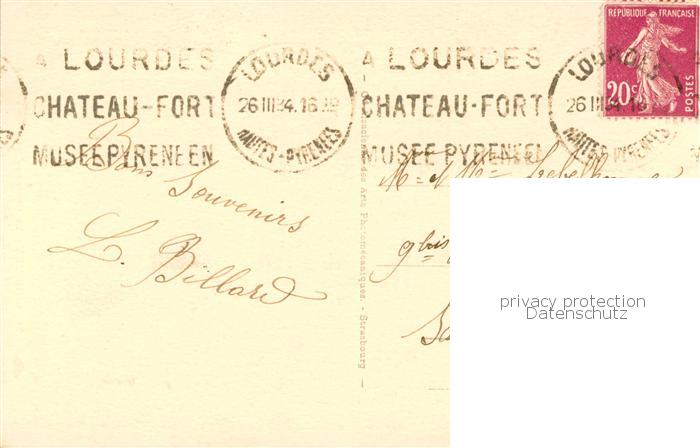 A LOURDES
CHATEAU-FORT
MUSEE PYRENEEN
LOURDES
26 III 34. 16
HAUTES-PYRENEES
A LOURDES
CHATEAU-FORT
MUSEE PYRENEEN
LOURDES
26 III 34. 16
HAUTES-PYRENEES
RÉPUBLIQUE FRANÇAISE
20c
POSTES
Bons Souvenirs
L. Billard
Arts Photomécaniques. - Strasbourg
M= et Mme
9bis
privacy protection
Datenschutz